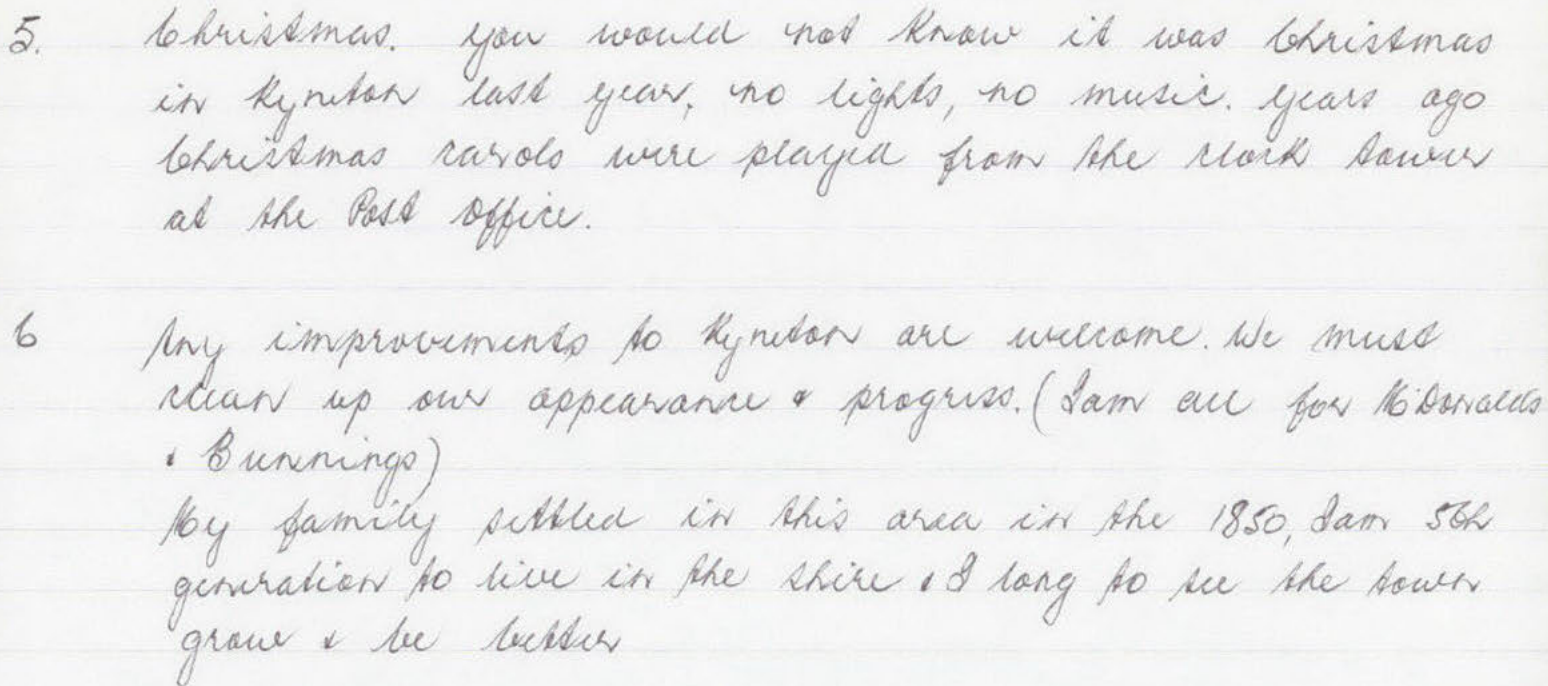 5. Christmas. You would not know it was Christmas
in Kyneton last year, no lights, no music. Years ago
Christmas carols were played from the clock tower
at the Post Office.
6 Any improvements to Kyneton are welcome. We must
clean up our appearance & progress. (I am all for McDonalds
& Bunnings)
My family settled in this area in the 1850, I am 5th
generation to live in the shire & I long to see the town
grow & be better